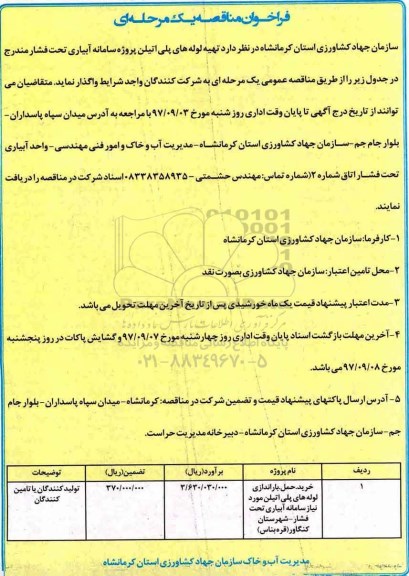 فراخوان مناقصه یک مرحله‌ای
سازمان جهاد کشاورزی استان کرمانشاه در نظر دارد تهیه لوله های پلی اتیلن پروژه سامانه آبیاری تحت فشار مندرج
در جدول زیر را از طریق مناقصه عمومی یک مرحله ای به شرکت کنندگان واجد شرایط واگذار نماید. متقاضیان می
توانند از تاریخ درج آگهی تا پایان وقت اداری روز شنبه مورخ ۹۷/۰۹/۰۳ با مراجعه به آدرس میدان سپاه پاسداران-
بلوار جام جم-سازمان جهاد کشاورزی استان کرمانشاه - مدیریت آب و خاک و امور فنی مهندسی - واحد آبیاری
تحت فشار اتاق شماره ۲(شماره تماس: مهندس حشمتی - ۰۸۳۳۸۳۵۸۹۳۵) اسناد شرکت در مناقصه را دریافت
نمایند.
۱-کارفرما: سازمان جهاد کشاورزی استان کرمانشاه
۲-محل تامین اعتبار: سازمان جهاد کشاورزی بصورت نقد
۳-مدت اعتبار پیشنهاد قیمت یک ماه خورشیدی پس از تاریخ آخرین مهلت تحویل می باشد.
۴-آخرین مهلت بازگشت اسناد پایان وقت اداری روز چهارشنبه مورخ ۹۷/۰۹/۰۷ و گشایش پاکات در روز پنجشنبه
مورخ ۹۷/۰۹/۰۸ می باشد.
۰۲۱-۸۸۳۴۹۶۷۰-۵
۵- آدرس ارسال پاکتهای پیشنهاد قیمت و تضمین شرکت در مناقصه: کرمانشاه - میدان سپاه پاسداران-بلوار جام
جم-سازمان جهاد کشاورزی استان کرمانشاه -دبیرخانه مدیریت حراست.
ردیف نام پروژه برآورد(ریال) تضمین(ریال) توضیحات
۱ خرید، حمل، باراندازی لوله های پلی اتیلن مورد نیاز سامانه آبیاری تحت فشار-شهرستان کنگاور(قره بناس) ۳/۶۳۰/۰۳۰/۰۰۰ ۳۷۰/۰۰۰/۰۰۰ تولید کنندگان یا تامین کنندگان
مدیریت آب و خاک سازمان جهاد کشاورزی استان کرمانشاه